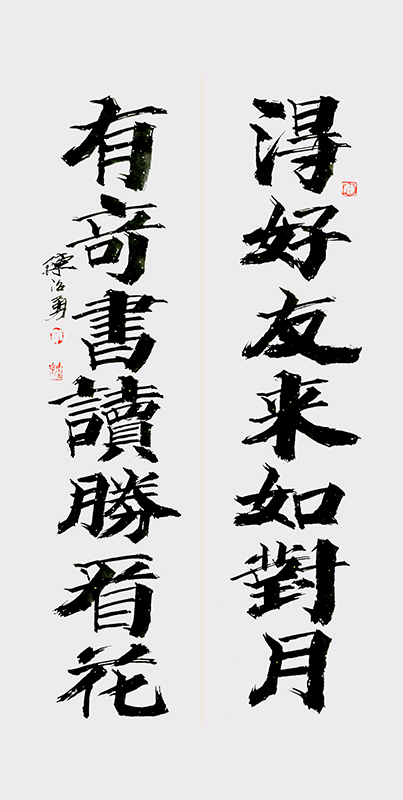 得好友来如對月
有奇書讀勝看花
治勇